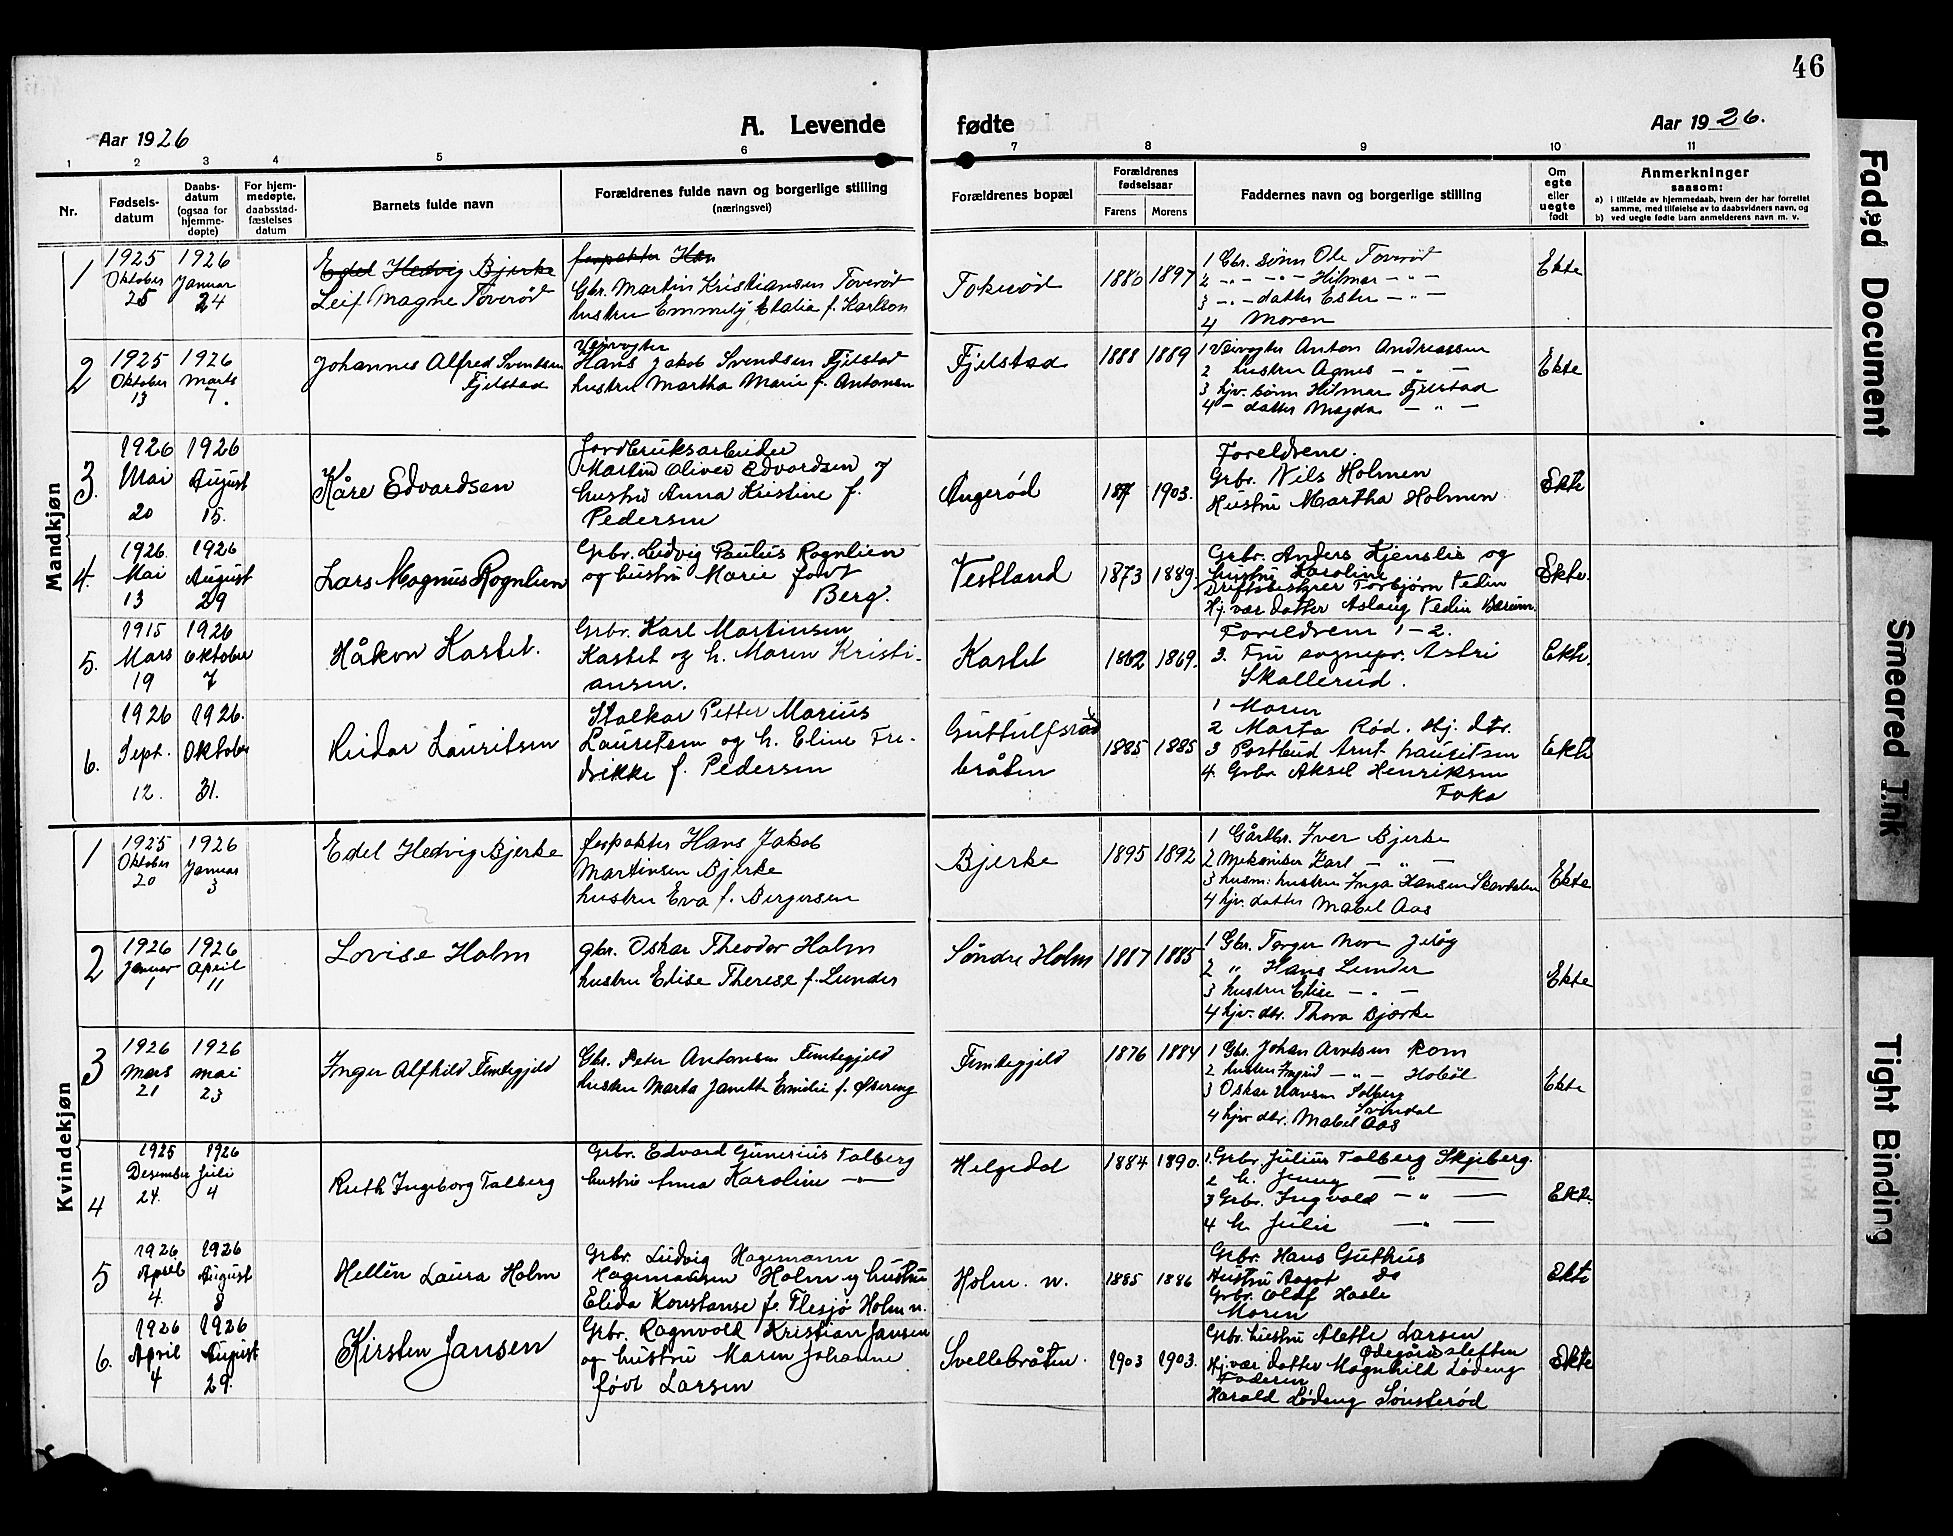 46
Aar 1926
A. Levende fødte
Aar 1926.
1 2 3 4 5 6 7 8 9 10 11
Nr.
Fødsels-
datum
Daabs-
datum
(ogsaa for
hjemme-
døpte)
For hjem-
medøpte,
daabsstad-
fæstelses
datum
Barnets fulde navn
Forældrenes fulde navn og borgerlige stilling
(næringsvei)
Forældrenes bopæl
Forældrenes
fødselsaar
Farens
Morens
Faddernes navn og borgerlige stilling
Om
egte
eller
uegte
født
Anmerkninger
saasom:
a) i tilfælde av hjemmedaab, hvem der har forrettet
samme, med tilføielse av to daabsvidners navn, og
b) ved uegte fødte barn anmelderens navn m. v.
Mandkjøn
1
1925
Oktober
25
1926
Januar
24
Edel Hedvig Bjerke
Leif Magne Toverød
forpakter Han
Gbr. Martin Kristiansen Toverød
hustru Emmily Etalia f. Karlson
Tokerød
1880 1897
1 Gbr. sønn Ole Toverød
2 -"- -"- Hilmar -"-
3 -"- datter Ester -"-
4 Moren
Ekte
2
1925
Oktober
13
1926
Marts
7.
Johannes Alfred Svendsen
Fjelstad
Veivogter
Hans Jakob Svendsen Fjelstad
hustru Martha Marie f. Antonsen
Fjelstad
1888 1889
1 Veivogter Anton Andreassen
2 hustru Agnes - " -
3 hjv. sønn Hilmar Fjelstad
4 - datter Magda - " -
Ekte
3.
1926
Mai
20
1926
August
15.
Kåre Edvardsen
Jordbruksarbeider
Martin Oliver Edvardsen og
hustru Anna Kristine f.
Pedersen
Angerød
1903.
Foreldrene.
Grbr. Nils Holmen
Hustru Martha Holmen
Ekte
4.
1926.
Mai
13
1926
August
29
Lars Magnus Rognlien
Grbr. Ludvig Paulus Rognlien
og hustru Marie født
Berg.
Vestland
1873 1889.
Grbr. Anders Kjenslie og
hustru Karoline
Driftsbestyrer Torbjørn Vedin
Hj. vær datter Aslaug Vedin Bærum.
Ekte.
5.
1915
Mars
19
1926
Oktober
7
Håkon Kastet.
Grbr. Karl Martinsen
Kastet og h. Maren Kristi-
ansen.
Kastet
1862 1869.
Foreldrene 1-2.
3. Fru sognepr. Astri
Skallerud.
Ekte.
6.
1926
Sept.
12.
1926.
Oktober
31.
Reidar Lauritsen
Stalkar Petter Marius
Lauritsen og h. Eline Fre-
drikke f. Pedersen
Guttulfsrød
bråten
1885 1885
1 Moren
2 Marta Rød. Hj. dtr.
3 Postbud Arnt Lauritsen
4. Grbr. Aksel Henriksen
Foka
Ekte
Kvindekjøn
1
1925
Oktober
20
1926
Januar
3
Edel Hedvig Bjerke
forpakter Hans Jakob
Martinsen Bjerke
hustru Eva f. Bergersen
Bjerke
1895 1892
1 Gårdbr. Iver Bjerke
2 Mekaniker Karl - " -
3 husm: hustru Inga Hansen Skavdalen
4 hjv. datter Mabel Aas
Ekte
2
1926
Januar
1
1926
April
11
Lovise Holm
gbr. Oskar Theodor Holm
hustru Elise Therese f. Lunder
Søndre Holm
1887 1885
1 Gbr. Torger Nore Jeløy
2 " Hans Lunder
3 hustru Elise - " -
4 hjv. dtr. Thora Bjørke
Ekte
3
1926
Mars
21
1926
mai
23
Inger Alfhild Fintegjeld
Gbr. Peter Antonsen Fintegjeld
hustru Marta Janette Emilie f. Østreng
Fintegjeld
1876 1884
1 Gbr. Johan Arntsen Rom
2 hustru Ingrid -"- Hobøl
3 Oskar Hansen Solberg
Svindal
4 hjv. dtr. Mabel Aas
Ekte
4
1925
Desember
24.
1926
Juli
4
Ruth Ingeborg Talberg
Grbr. Edvard Gunerius Talberg
hustru Anna Karoline -"-
Helgedal
1884 1890.
1. Grbr. Julius Talberg Skjeberg.
2 h. Jenny -"-
3 Grbr. Ingvald -"-
4 h. Julie -"-
Ekte.
5
1926
April
4.
1926
August
8
Hellen Laura Holm
Grbr. Ludvig Hagemann
Hagemansen Holm og hustru
Elida Konstanse f. Flesjø Holm n.
Holm. n.
1885 1886
Grbr. Hans Guthus
Hustru Aagot Do
Grbr. Olaf Hasle
Moren
Ekte
6.
1926
April
4
1926
August
29.
Kirsten Jansen
Grbr. Ragnvald Kristian Jansen
og hustru Maren Johanne
født Larsen
Svellebråten.
1903 1903.
Grbr. hustru Alette Larsen
Ødegårdsletten
Hj. vær datter Magnhild Lødeng
Faderen
Harald Lødeng Sønsterød
Ekte
Faded Document
Smeared Ink
Tight Binding